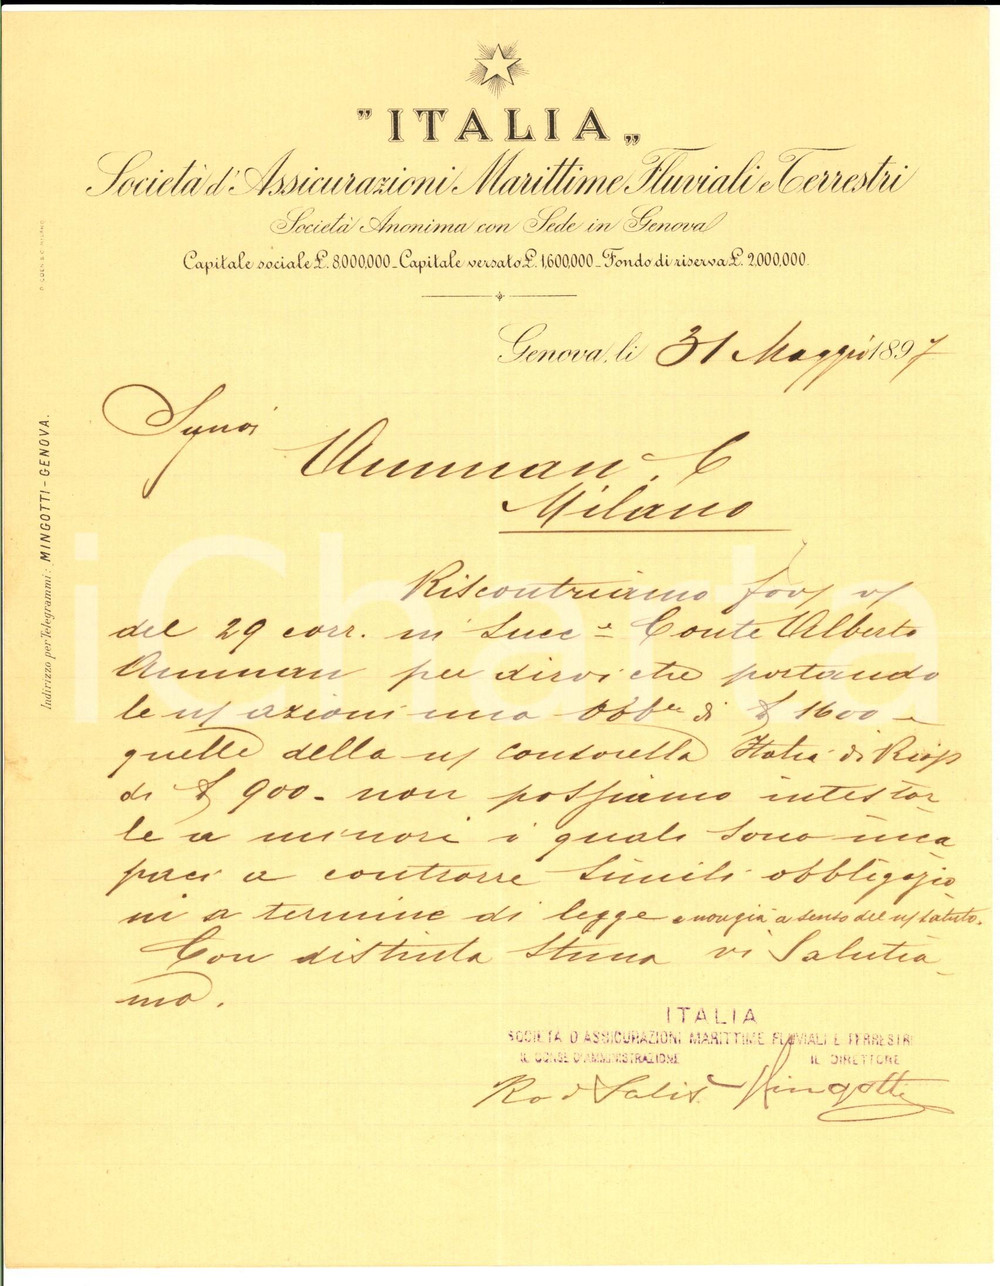 "ITALIA„
Società d'Assicurazioni Marittime Fluviali e Terrestri
Società Anonima con Sede in Genova
Capitale sociale £. 8.000,000 _ Capitale versato £. 1,600,000 _ Fondo di riserva £. 2,000,000.
Indirizzo per Telegrammi: MINGOTTI - GENOVA.
Genova, li 31 Maggio 1897
Signori
Amman, C
Milano
Riscontriamo v/
del 29 corr. in Succ.e Conte Alberto
Amman per dirvi che portando
le n/ azioni una Obb.ne di £ 1600 -
quelle della n/ consorella Italia di Riass
di £ 900 - non possiamo intestar_
le a minori i quali sono inca_
paci a contrarre simili obbligazio_
ni a termine di legge e non già a senso del n/ statuto.
Con distinta stima vi salutia_
mo.
ITALIA
SOCIETÀ D'ASSICURAZIONI MARITTIME FLUVIALI E TERRESTRI
IL CONSE D'AMMINISTRAZIONE IL DIRETTORE
Salis Mingotti
iCharta